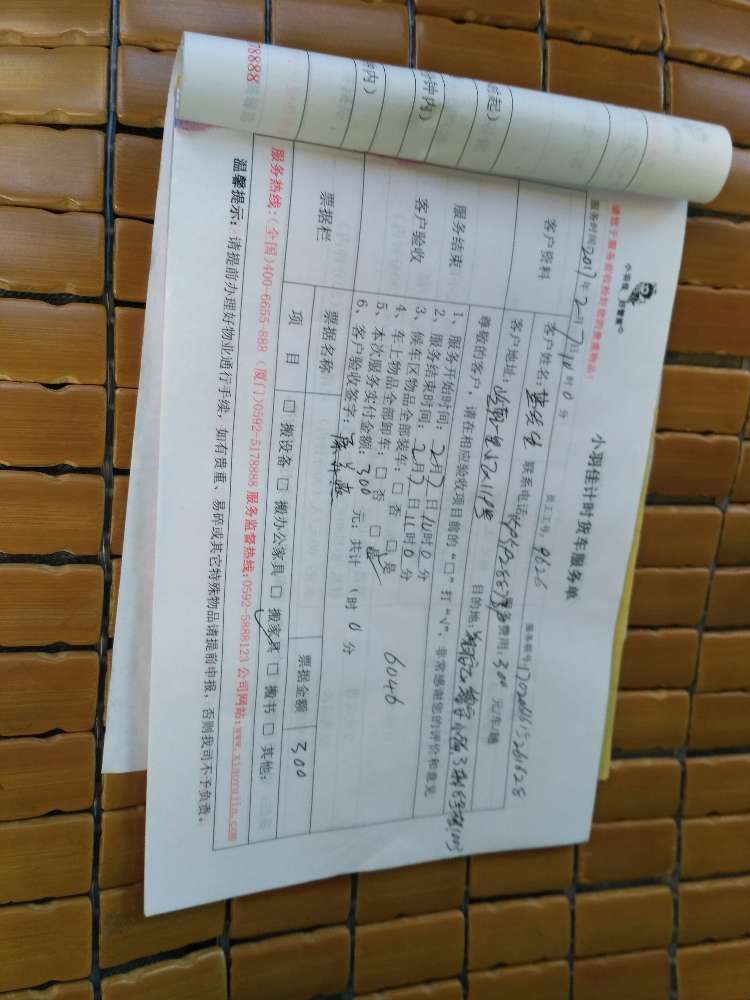 小羽佳计时货车服务单
小羽佳 好管家
请您于服务前收好您的贵重物品！
员工工号：9626
服务时间2017年2月7日10时0分
客户资料
客户姓名：
联系电话
服务费用：300元/车/趟
客户地址：
目的地：
尊敬的客户，请在相应验收项目前的“□”打“√”，非常感谢您的评价和意见
服务结束
客户验收
1、服务开始时间：2月7日10时0分
2、服务结束时间：2月7日11时0分
3、候车区物品全部装车：□ 否 □ 是
4、车上物品全部卸车：□ 否 □ 是
5、本次服务实付金额：300元；共计 1时0分
6、客户验收签字：
6046
票据栏
票据名称
票据金额
300
项 目
□ 搬设备 □ 搬办公家具 □ 搬家具 □ 搬书 □ 其他：
服务热线：(全国)400-6655-888 (厦门)0592-5178888 服务监督热线：0592-5888123 公司网站：www.xiaoyujia.com
温馨提示：请提前办理好物业通行手续，如有贵重、易碎或其它特殊物品请提前申报，否则我司不予负责。
时起）
钟内）
钟内）
78888